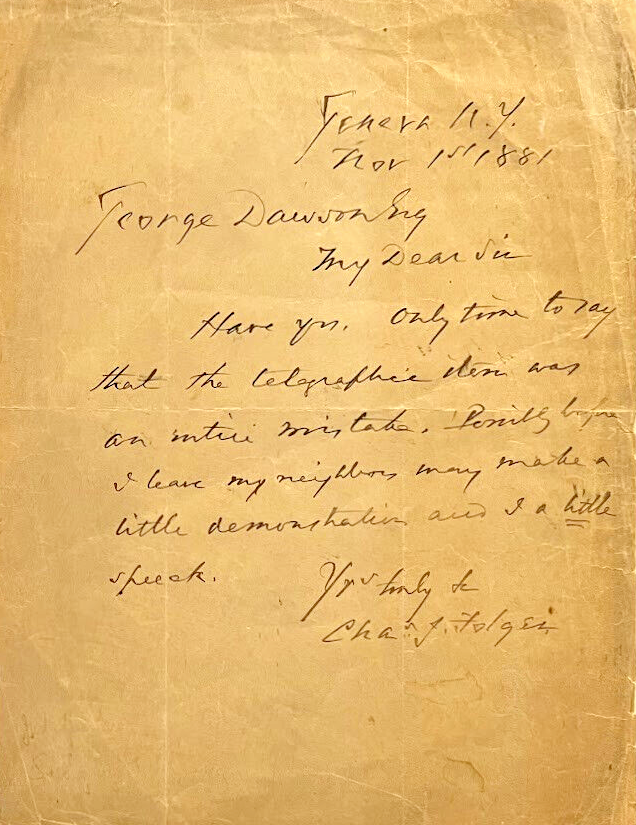 Geneva N.Y.
Nov 1st 1881
George Dawson Esq
My Dear Sir
Have yrs. Only time to say
that the telegraphic item was
an entire mistake. Possibly before
I leave my neighbors may make a
little demonstration and I a little
speech.
Yrs truly &c
Chas. J. Folger